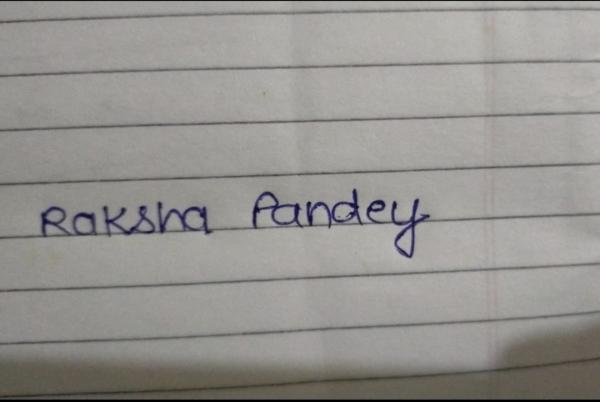 Raksha Pandey